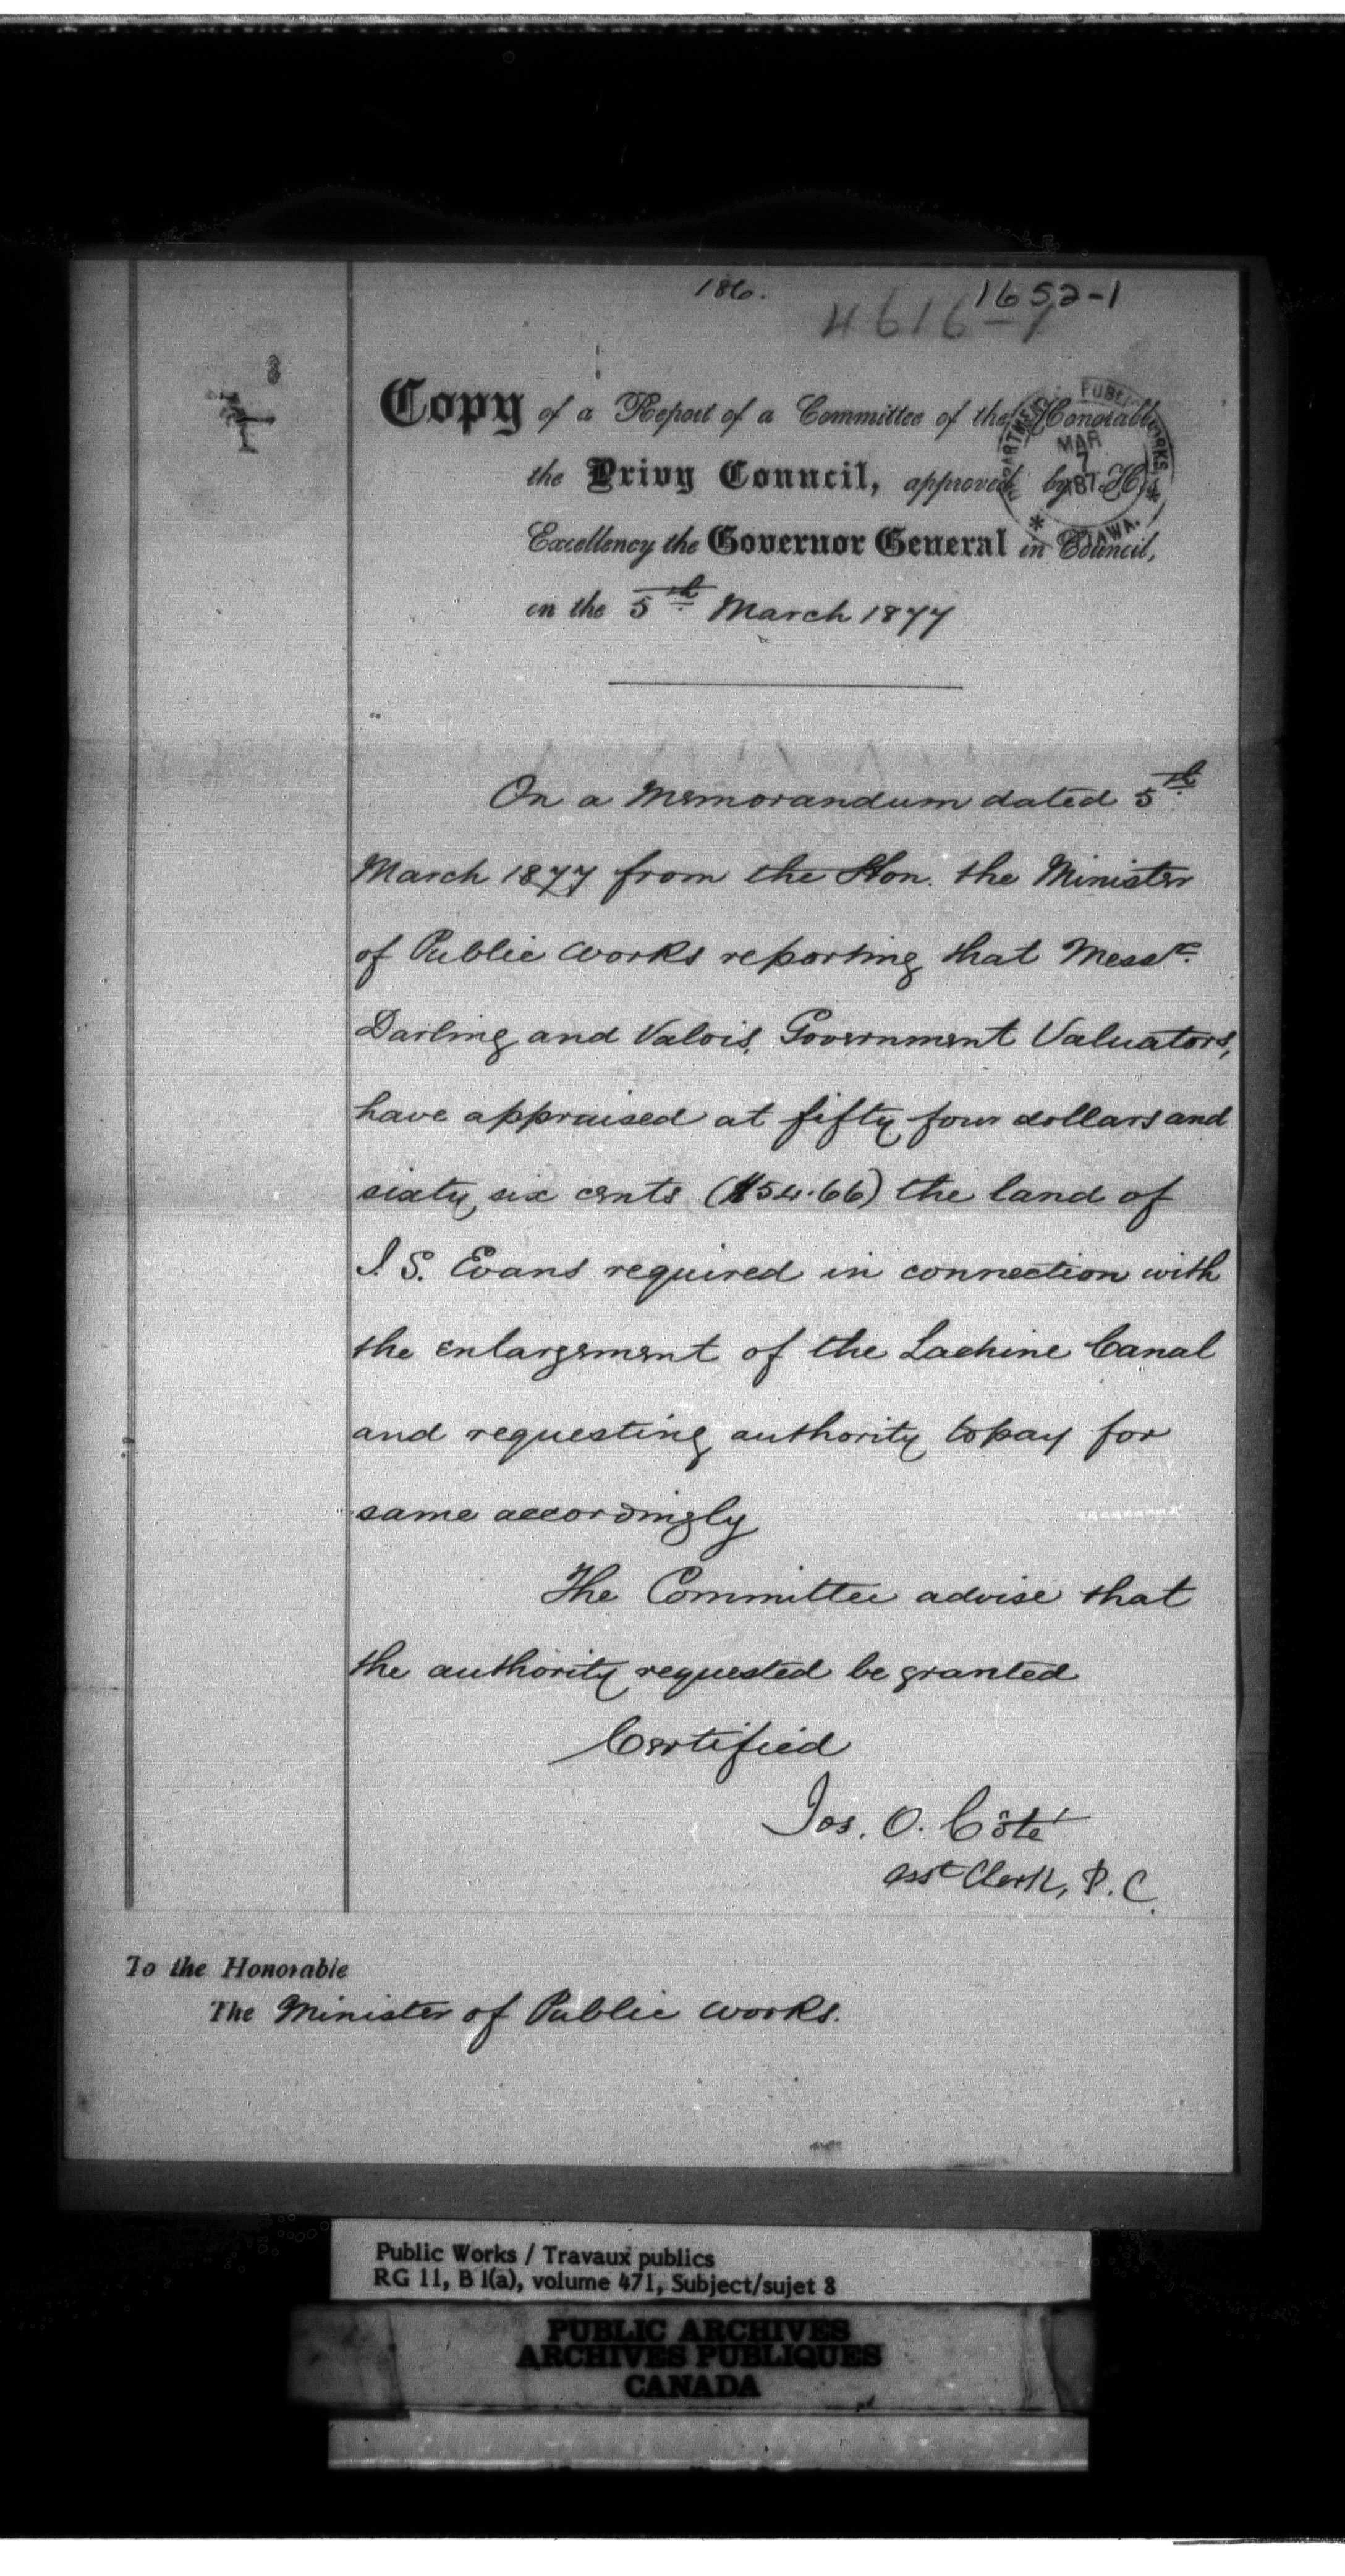 186.
1652-1
4616-1
Copy of a Report of a Committee of the Honorable
the Privy Council, approved by His
Excellency the Governor General in Council,
on the 5th March 1877
DEPARTMENT PUBLIC WORKS, * OTTAWA. *
MAR
7
187
On a Memorandum dated 5th
March 1877 from the Hon. the Minister
of Public Works reporting that Messrs.
Darling and Valois, Government Valuators,
have appraised at fifty four dollars and
sixty six cents ($54.66) the land of
I. S. Evans required in connection with
the enlargement of the Lachine Canal
and requesting authority to pay for
same accordingly
The Committee advise that
the authority requested be granted
Certified
Jos. O. Côté
Asst Clerk, P. C.
To the Honorable
The Minister of Public Works.
Public Works / Travaux publics
RG 11, B 1(a), volume 471, Subject/sujet 8
PUBLIC ARCHIVES
ARCHIVES PUBLIQUES
CANADA